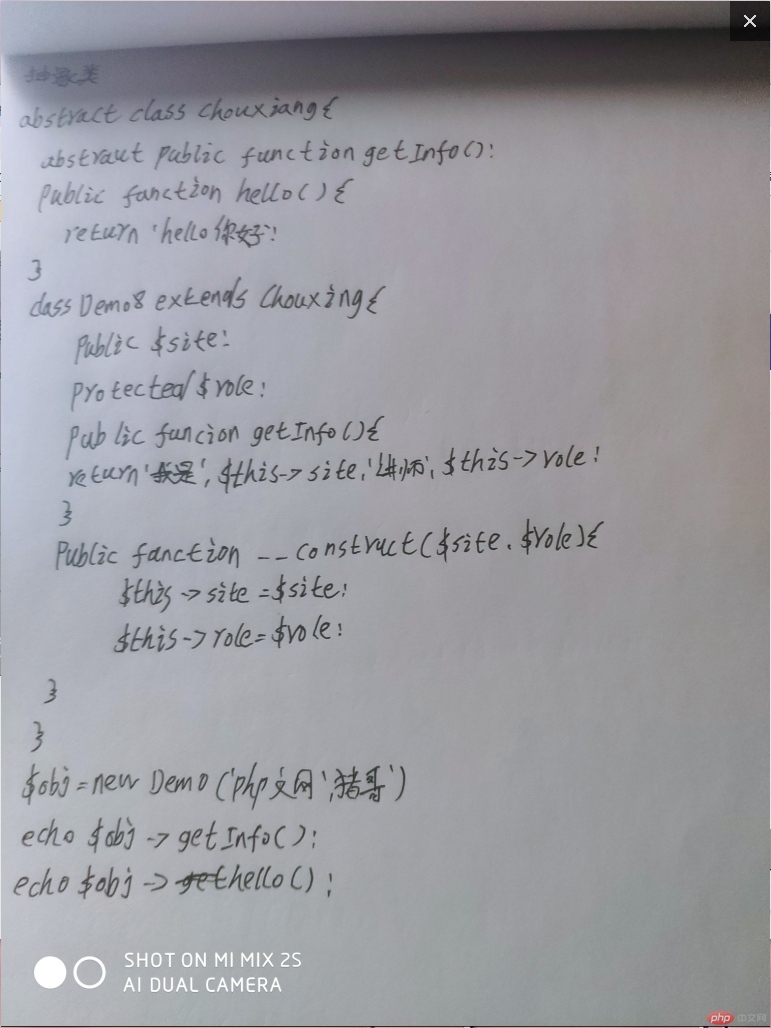 抽象类
abstract class Chouxiang{
abstraut public function getInfo():
Public fanction hello(){
return 'hello 你好':
}
class Demo8 extends Chouxing{
Public $site:
Protected $role:
Public funcion getInfo(){
return '我是', $this->site,'讲师', $this->role:
}
Public fanction __construct($site, $role){
$this->site=$site:
$this->role=$role:
}
}
$obj=new Demo('php文网','猪哥')
echo $obj->getInfo();
echo $obj->hello();
SHOT ON MI MIX 2S
AI DUAL CAMERA
php 中文网